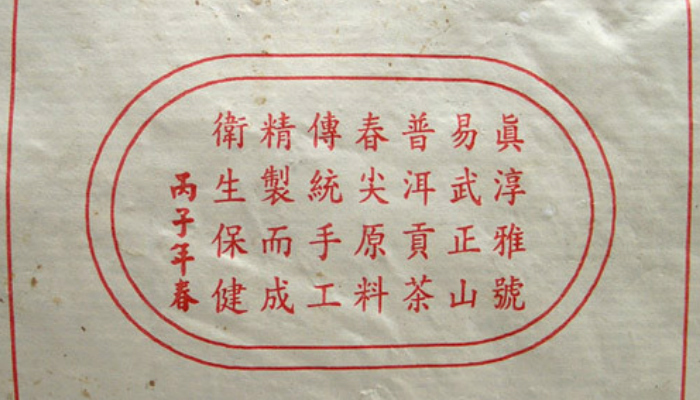 眞淳雅號
易武正山
普洱貢茶
春尖原料
傳統手工
精製而成
衛生保健
丙子年春